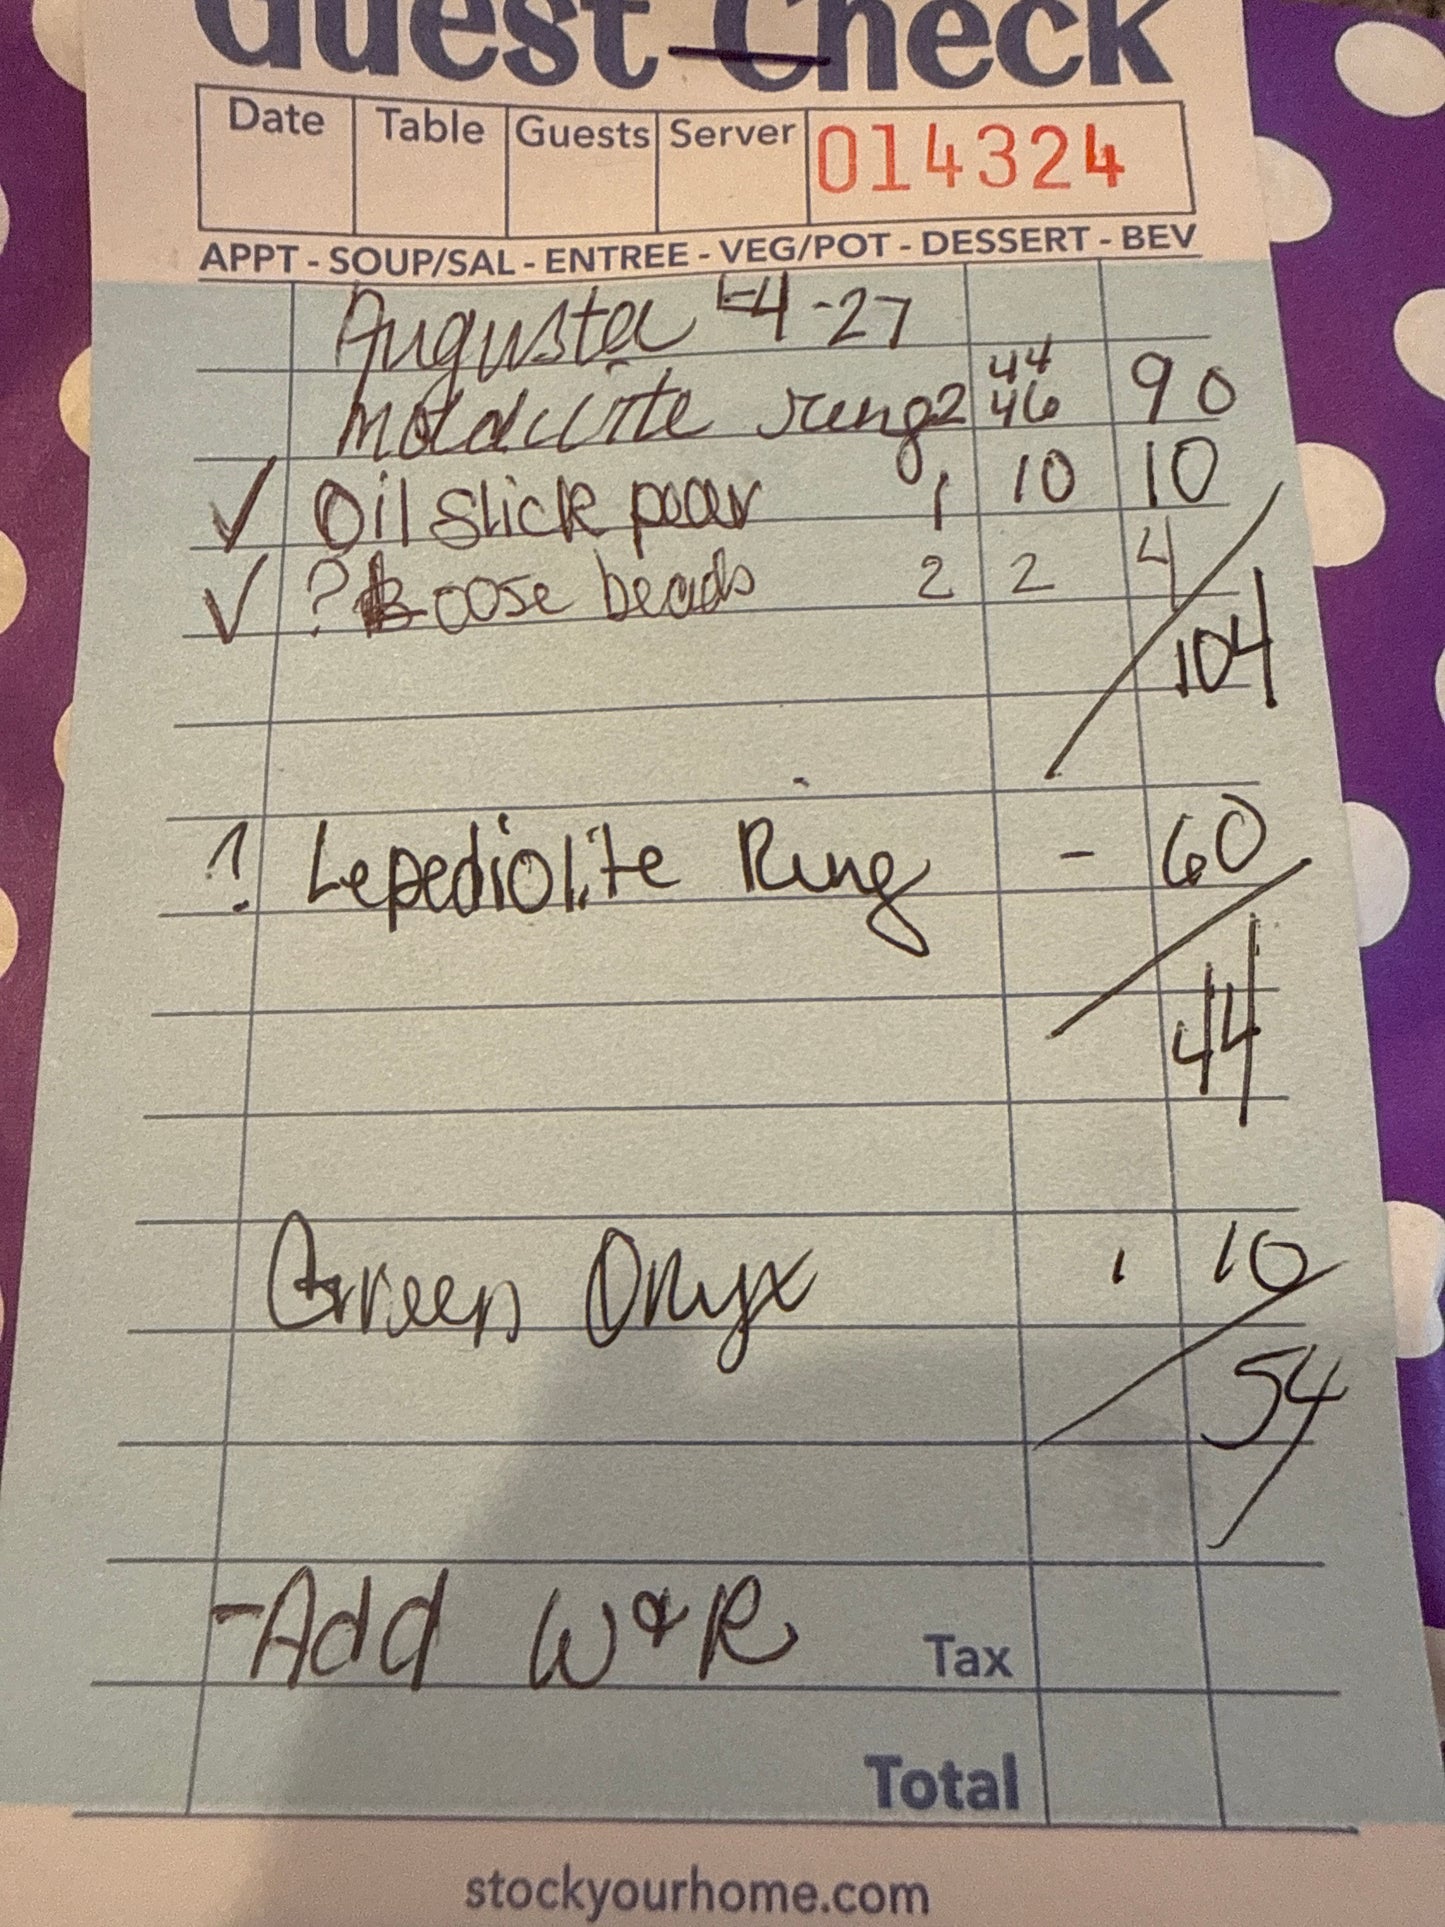 Guest Check
Date Table Guests Server 014324
APPT - SOUP/SAL - ENTREE - VEG/POT - DESSERT - BEV
Augusta 4-27
44
Moldavite ring 2 46 90
✓ Oil slick pear 1 10 10
✓ ? Loose beads 2 2 4
104
? Lepediolite Ring - 60
44
Green Onyx 1 10
54
-Add W & R
Tax
Total
stockyourhome.com